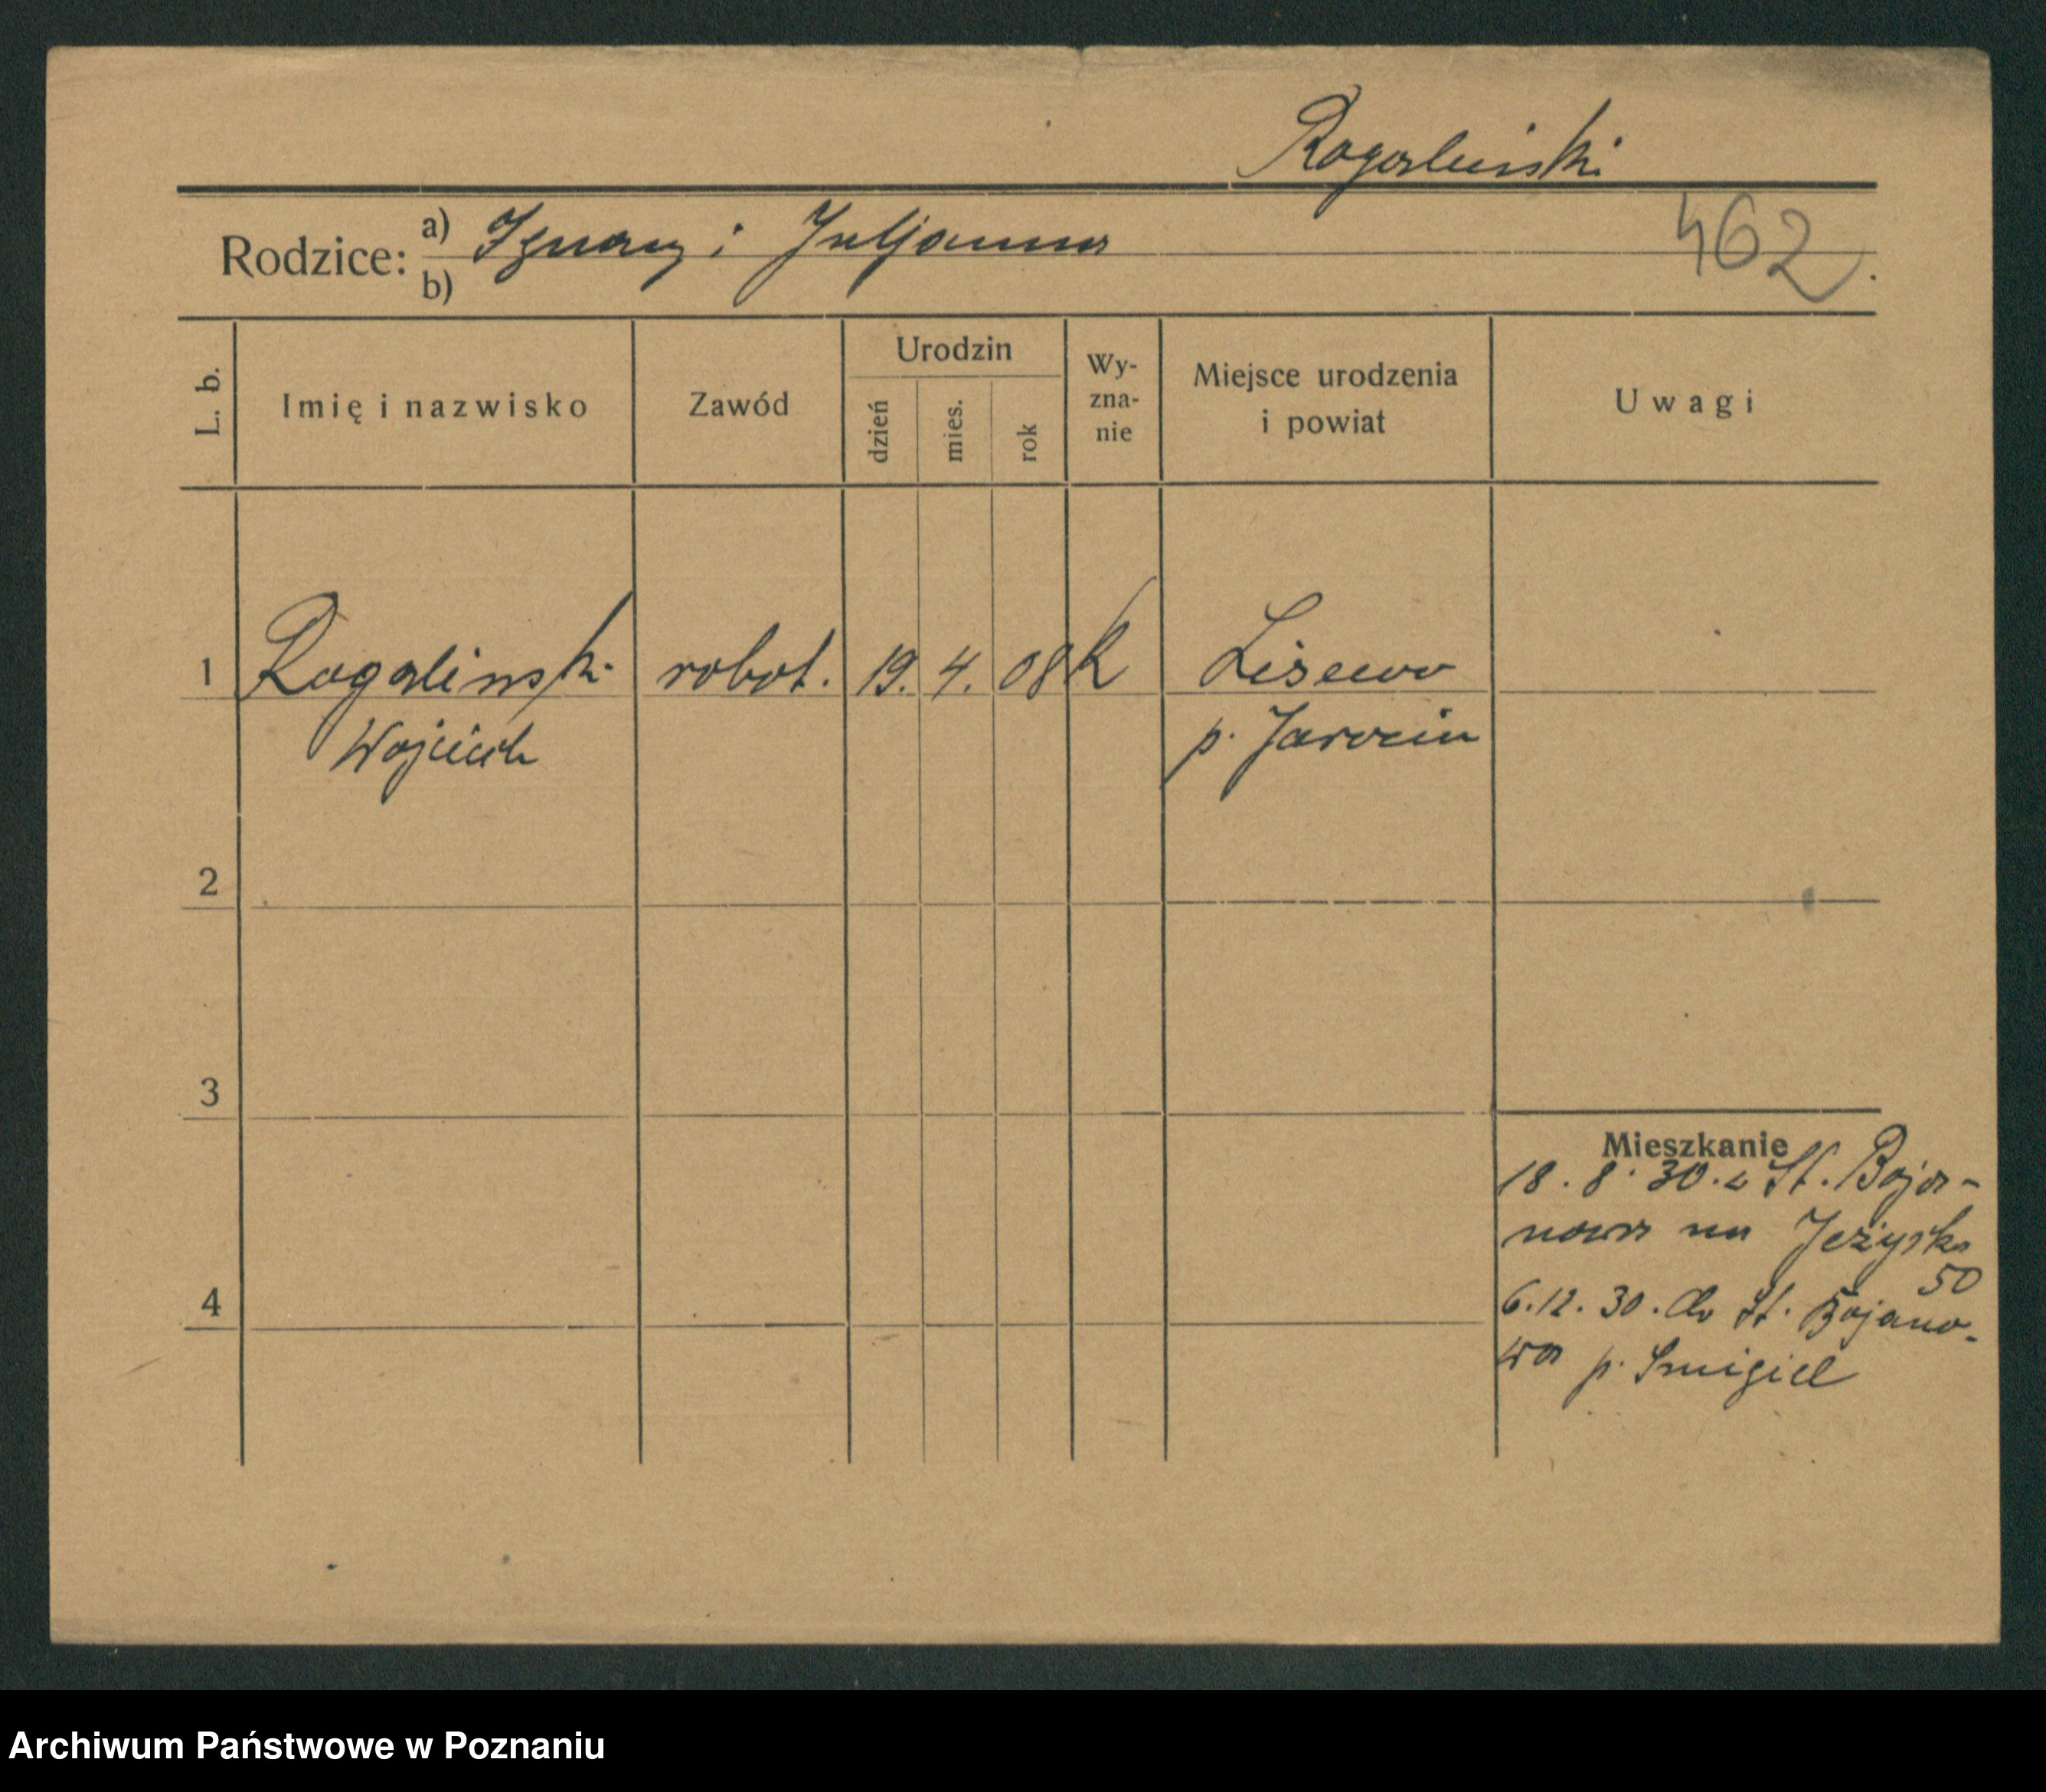 Rogaliński
Rodzice: a) Ignacy i Juljanna
b)
462.
L. b.
Imię i nazwisko
Zawód
Urodzin
dzień
mies.
rok
Wy-
zna-
nie
Miejsce urodzenia
i powiat
Uwagi
1 Rogalinski robot. 19. 4. 08 K Lisewo
Wojciech p. Jarocin
2
3
4
Mieszkanie
18. 8. 30. z St. Boja-
nowa na Jeżycka
50
6.12. 30. do St. Bojano-
wa p. Smigiel
Archiwum Państwowe w Poznaniu